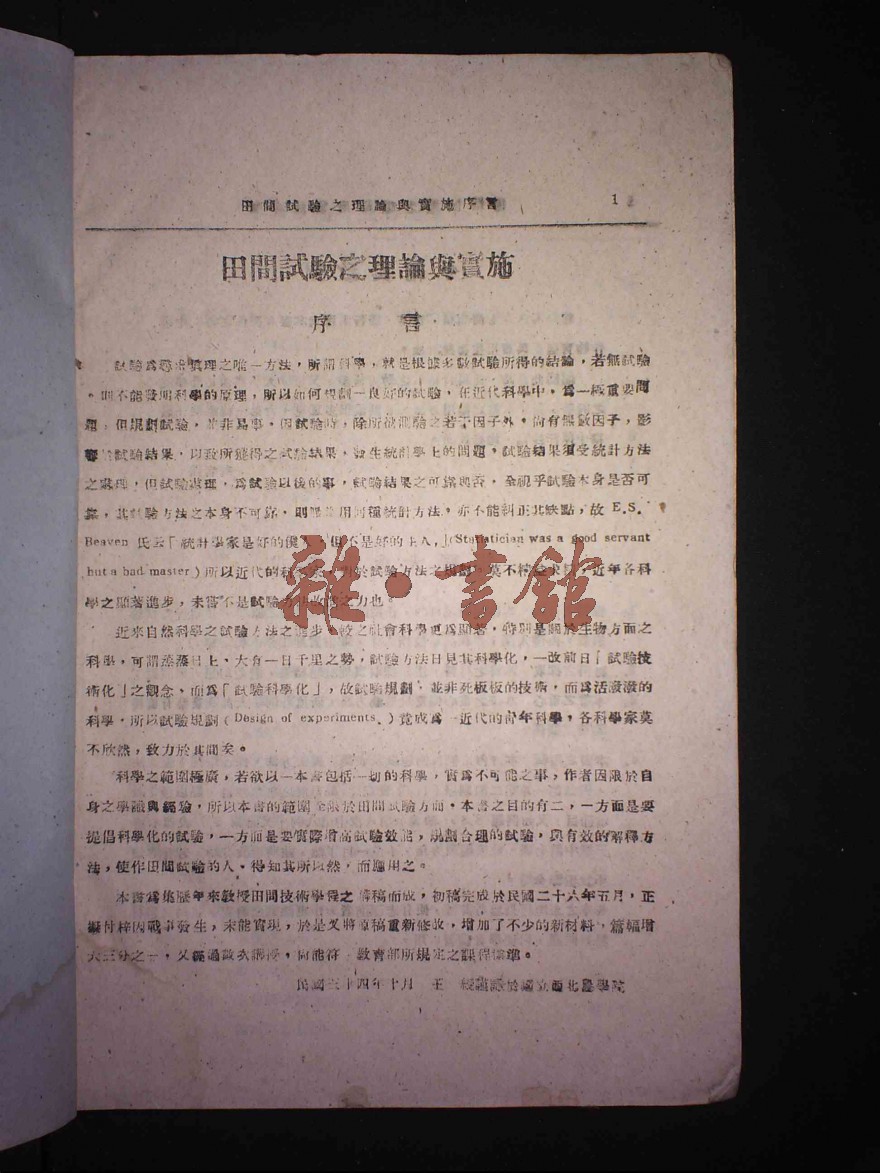 田間試驗之理論與實施序言 1
田間試驗之理論與實施
序 言
試驗為尋求真理之唯一方法，所謂科學，就是根據多數試驗所得的結論，若無試驗
。則不能發明科學的原理，所以如何規劃一良好的試驗，在近代科學中，為一極重要問
題，但規劃試驗，並非易事，因試驗時，除所欲測驗之若干因子外，尚有無數因子，影
響當試驗結果，以致所獲得之試驗結果，發生統計學上的問題，試驗結果須受統計方法
之處理，但試驗處理，為試驗以後的事，試驗結果之可靠與否，全視乎試驗本身是否可
靠，其試驗方法之本身不可靠，則無論用何種統計方法，亦不能糾正其缺點，故 E.S.
Beaven 氏云「統計學家是好的僕人，但不是好的主人，」（Statistician was a good servant
but a bad master）所以近代的科學家，對於試驗方法之規劃，莫不精益求精，近年各科
學之顯著進步，未嘗不是試驗方法改進之力也。
近來自然科學之試驗方法之進步，較之社會科學更為顯著，特別是關於生物方面之
科學，可謂蒸蒸日上、大有一日千里之勢，試驗方法日見其科學化，一改前日「試驗技
術化」之觀念、而為「試驗科學化」，故試驗規劃，並非死板板的技術，而為活潑潑的
科學，所以試驗規劃（Design of experiments.）竟成為一近代的青年科學，各科學家莫
不欣然，致力於其間矣。
科學之範圍極廣，若欲以一本書包括一切的科學，實為不可能之事，作者因限於自
身之學識與經驗，所以本書的範圍全限於田間試驗方面。本書之目的有二，一方面是要
提倡科學化的試驗，一方面是要實際增高試驗效能，規劃合理的試驗，與有效的解釋方
法，使作田間試驗的人，得知其所以然，而應用之。
本書為集歷年來教授田間技術學程之講稿而成，初稿完成於民國二十六年五月，正
擬付梓因戰事發生，未能實現，於是又將原稿重新修改，增加了不少的新材料，篇幅增
大三分之一，又經過數次講授，尚能符合教育部所規定之課程標準。
民國三十四年十月 王 綬謹識於國立西北農學院
雜·書館